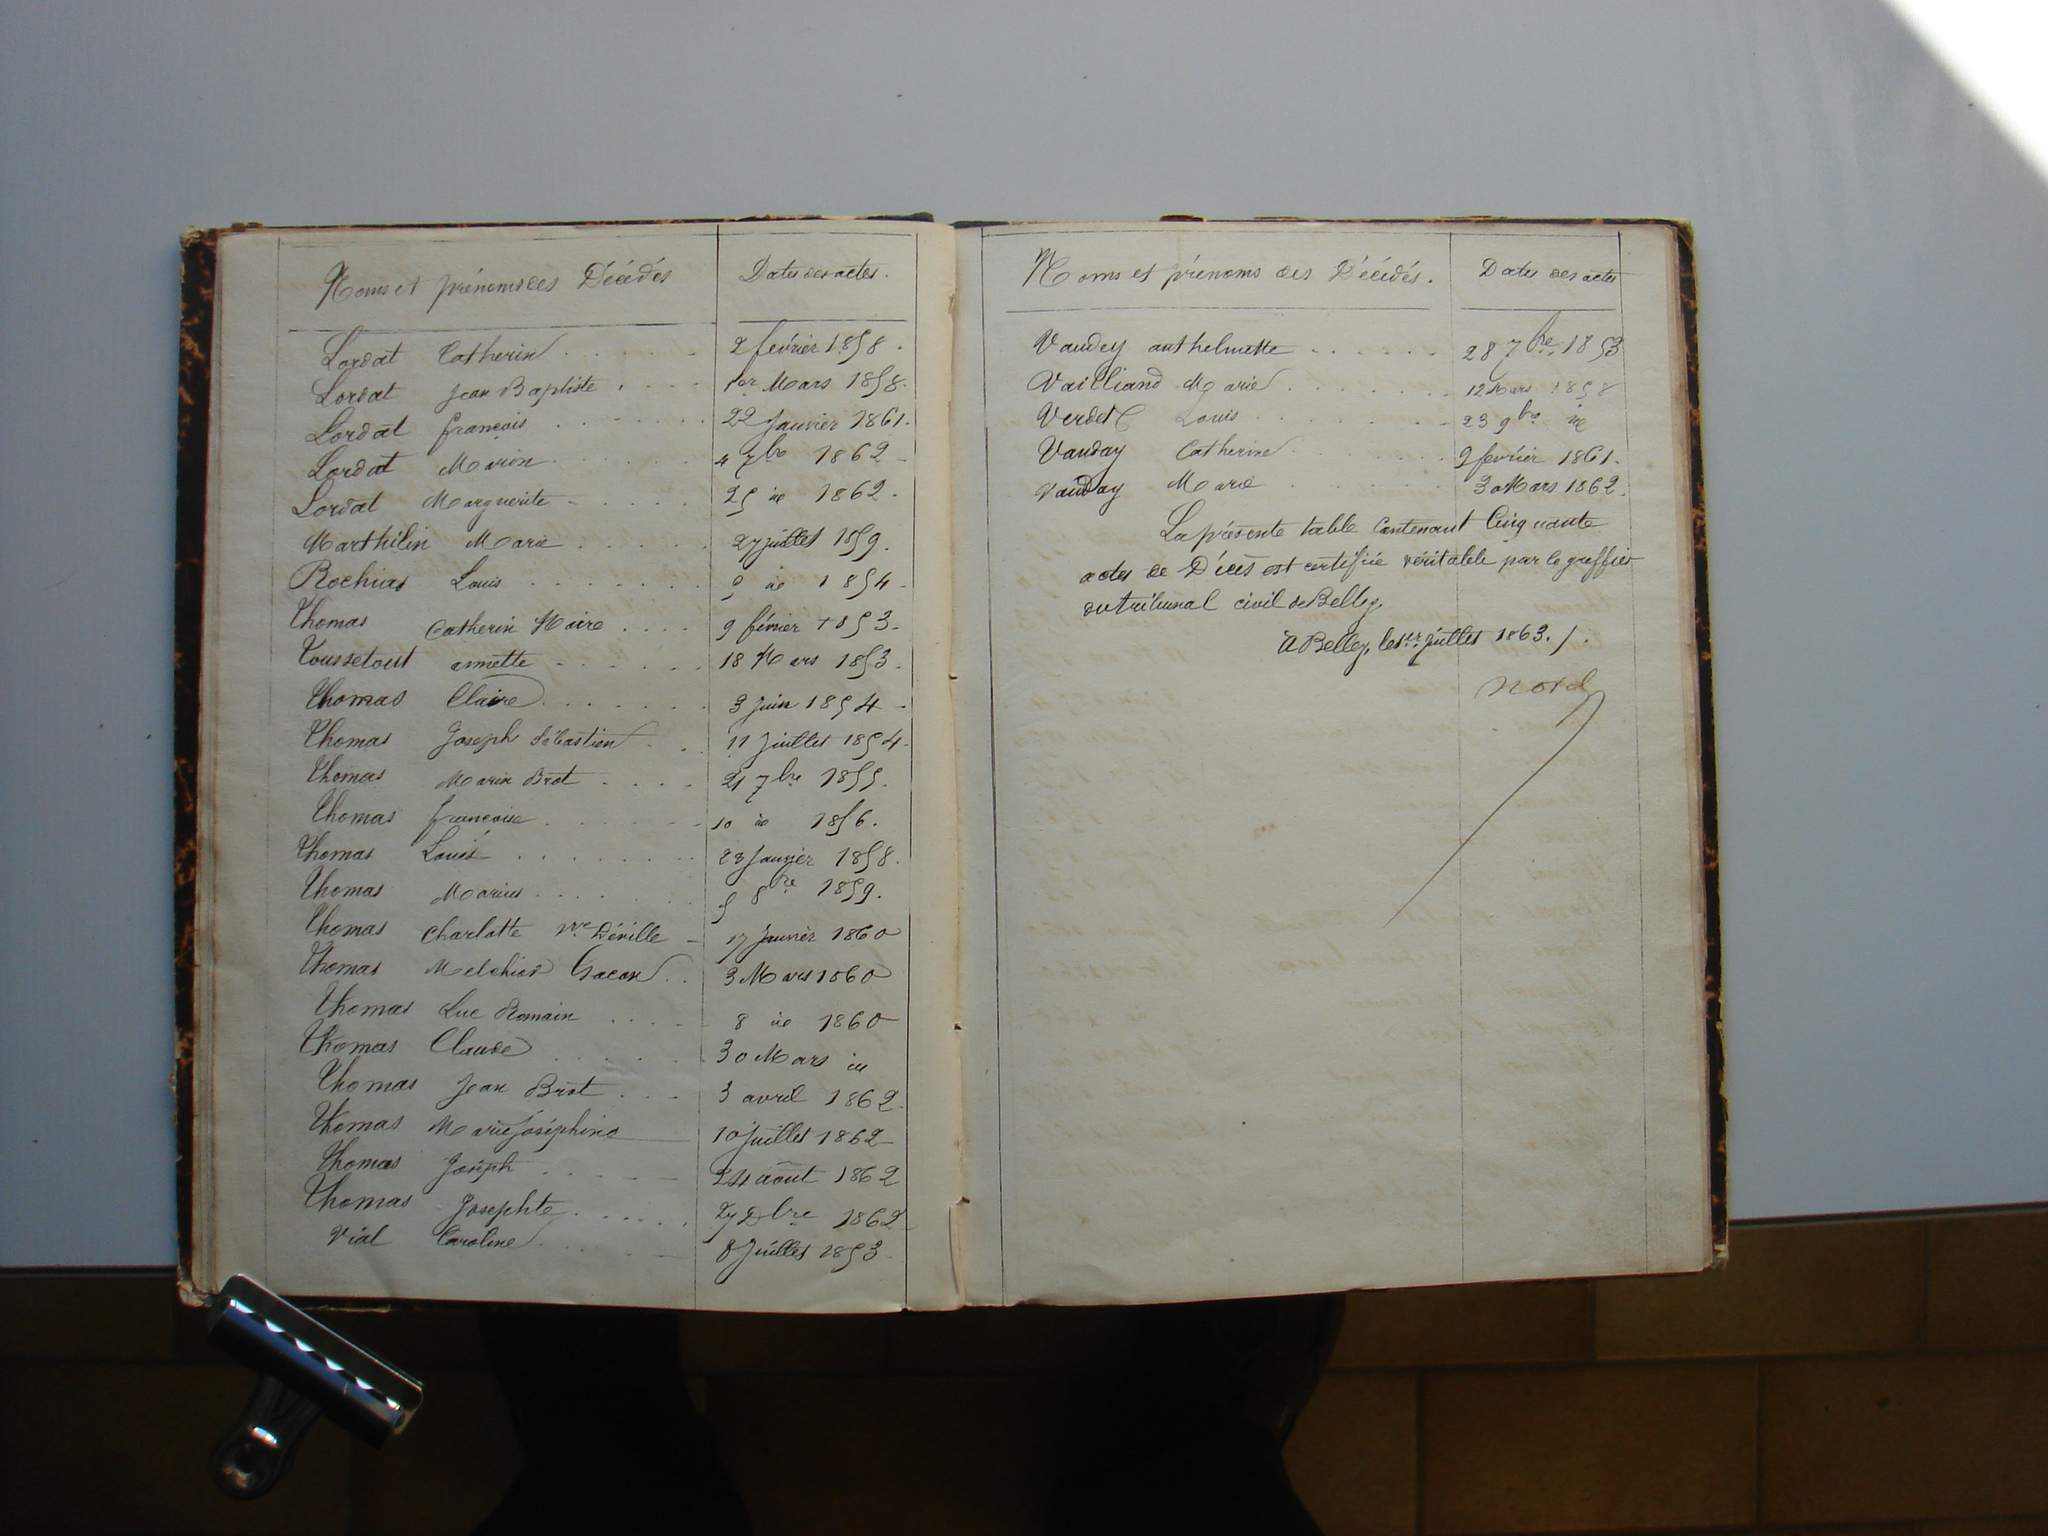 Noms et prénoms des Décédés Dates des actes.
Lordat Catherin 2 février 1858.
Lordat Jean Baptiste 1er Mars 1858.
Lordat françois 22 Janvier 1861.
Lordat Marin 4 7bre 1862
Lordat Marguerite 25 id 1862.
Marthilin Marie 27 juillet 1859.
Rochias Louis 9 id 1854
Thomas Catherin Maire 9 février 1853.
Toussetout annette 18 Mars 1853.
Thomas Claire 3 Juin 1854
Thomas Joseph Sébastien 11 Juillet 1854.
Thomas Marin Brot 21 7bre 1855.
Thomas françoise 10 id 1856.
Thomas Louis 23 Janvier 1858.
Thomas Marius 5 8bre 1859.
Thomas Charlotte Vve Déville 17 Janvier 1860
Thomas Melchior Gacon 3 Mars 1860
Thomas Luc Romain 8 id 1860
Thomas Claude 30 Mars id
Thomas Jean Brot 3 avril 1862.
Thomas Marie Joséphine 10 Juillet 1862
Thomas Joseph août 1862
Thomas Josephte 27 Dbre 1862
Vial Caroline 8 Juillet 1853.
Noms et prénoms des Décédés. Dates des actes
Vaudey anthelmette 28 7bre 1853
Vailliand Marie 12 Mars 1858
Verdet Louis 23 9bre id
Vauday Catherine 2 février 1861.
Vauday Marie 30 Mars 1862.
La présente table Contenant Cinquante
actes de Décès est certifiée véritable par le greffier
du tribunal civil de Belley.
à Belley, le 1er juillet 1863. /.